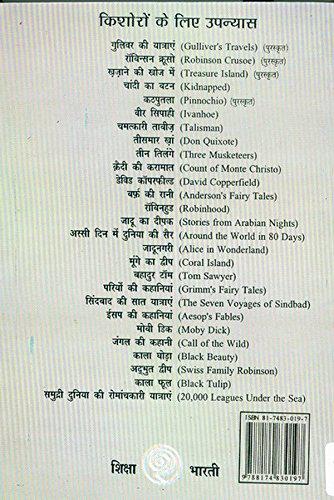 किशोरों के लिए उपन्यास
गुलिवर की यात्राएं (Gulliver's Travels) (पुरस्कृत)
रॉबिन्सन क्रूसो (Robinson Crusoe) (पुरस्कृत)
ख़ज़ाने की खोज में (Treasure Island) (पुरस्कृत)
चांदी का बटन (Kidnapped)
कठपुतला (Pinnochio) (पुरस्कृत)
वीर सिपाही (Ivanhoe)
चमत्कारी तावीज़ (Talisman)
तीसमार खां (Don Quixote)
तीन तिलंगे (Three Musketeers)
क़ैदी की करामात (Count of Monte Christo)
डेविड कॉपरफील्ड (David Copperfield)
बर्फ़ की रानी (Anderson's Fairy Tales)
राबिनहुड (Robinhood)
जादू का दीपक (Stories from Arabian Nights)
अस्सी दिन में दुनिया की सैर (Around the World in 80 Days)
जादूनगरी (Alice in Wonderland)
मूंगे का द्वीप (Coral Island)
बहादुर टॉम (Tom Sawyer)
परियों की कहानियां (Grimm's Fairy Tales)
सिंदबाद की सात यात्राएं (The Seven Voyages of Sindbad)
ईसप की कहानियां (Aesop's Fables)
मोबी डिक (Moby Dick)
जंगल की कहानी (Call of the Wild)
काला घोड़ा (Black Beauty)
अद्भुत द्वीप (Swiss Family Robinson)
काला फूल (Black Tulip)
समुद्री दुनिया की रोमांचकारी यात्राएं (20,000 Leagues Under the Sea)
ISBN 81-7483-019-7
9 788174 830197
शिक्षा भारती